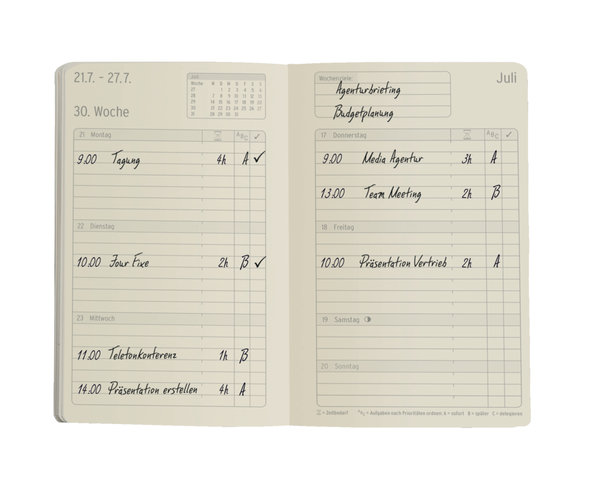 21.7. – 27.7.
30. Woche
Juli
Woche M D M D F S S
27 1 2 3 4 5 6
28 7 8 9 10 11 12 13
29 14 15 16 17 18 19 20
30 21 22 23 24 25 26 27
31 28 29 30 31
21 Montag ABC ✓
9.00 Tagung 4h A ✓
22 Dienstag
10.00 Jour Fixe 2h B ✓
23 Mittwoch
11.00 Telefonkonferenz 1h B
14.00 Präsentation erstellen 4h A
Wochenziele:
Agenturbriefing
Budgetplanung
Juli
17 Donnerstag ABC ✓
9.00 Media Agentur 3h A
13.00 Team Meeting 2h B
18 Freitag
10.00 Präsentation Vertrieb 2h A
19 Samstag
20 Sonntag
= Zeitbedarf ABC = Aufgaben nach Prioritäten ordnen: A = sofort B = später C = delegieren